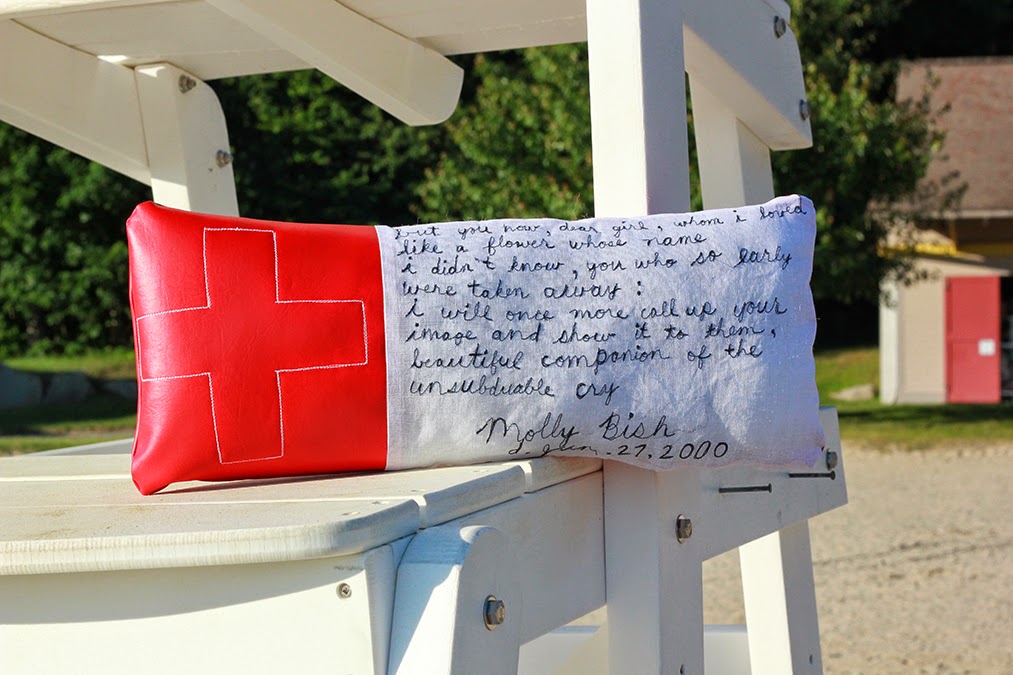 but you now, dear girl, whom i loved
like a flower whose name
i didn't know, you who so early
were taken away:
i will once more call up your
image and show it to them,
beautiful companion of the
unsubduable cry
Molly Bish
27, 2000